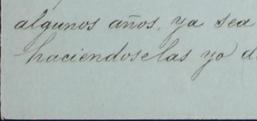 algunos años, ya sea
haciendoselas yo d